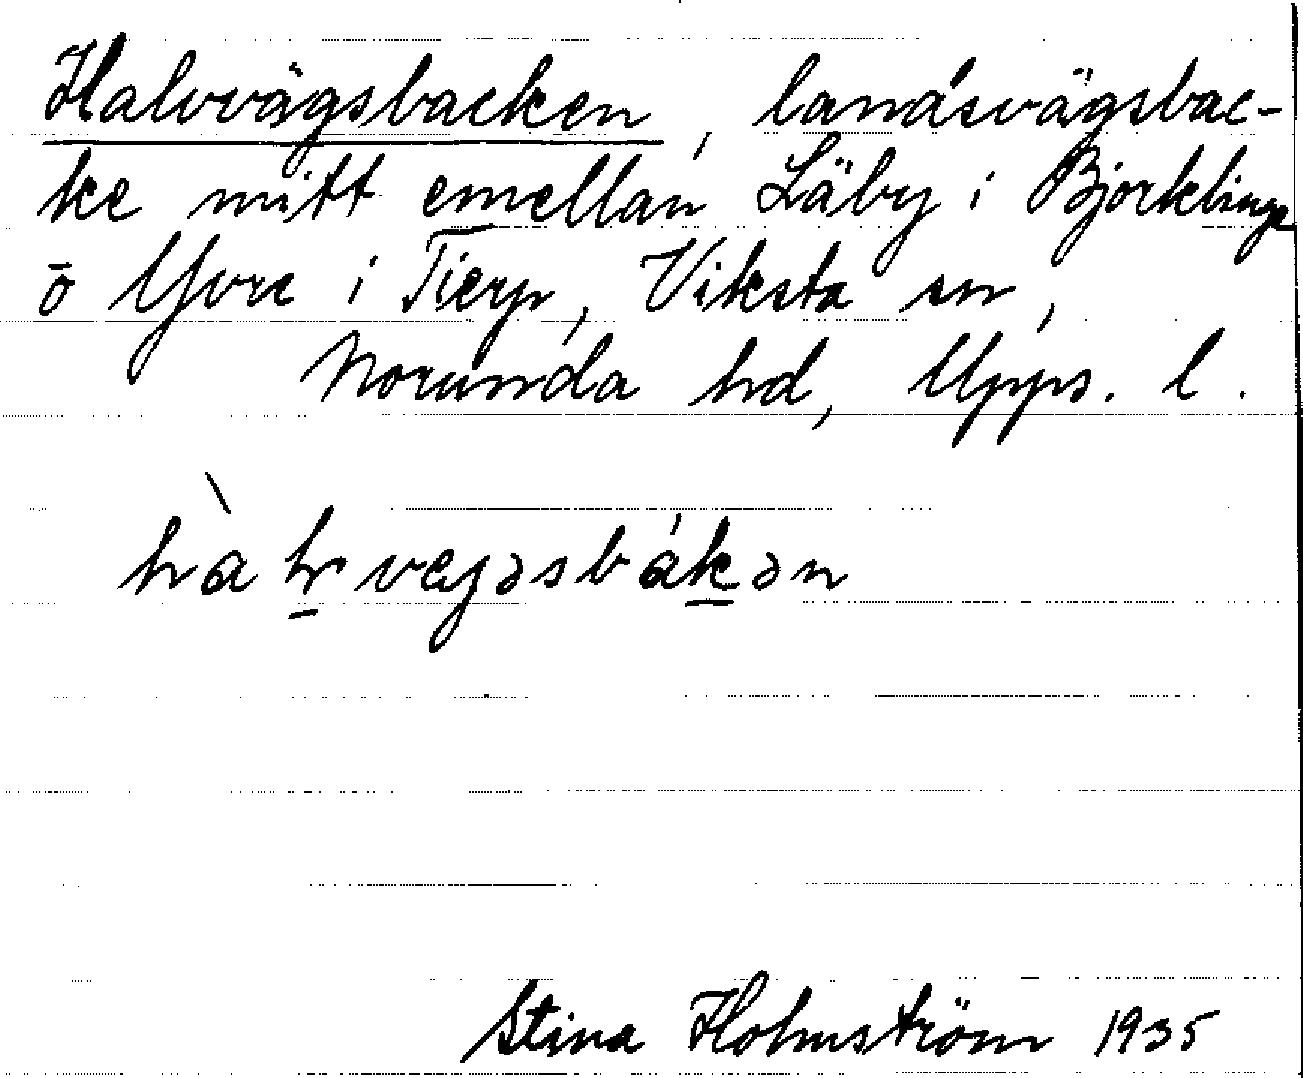 Halvvägsbacken, landsvägsbac-
ke mitt emellan Läby i Björklinge
o Yvre i Tierp, Viksta sn,
Norunda hd, Upps. l.
Stina Holmström 1935